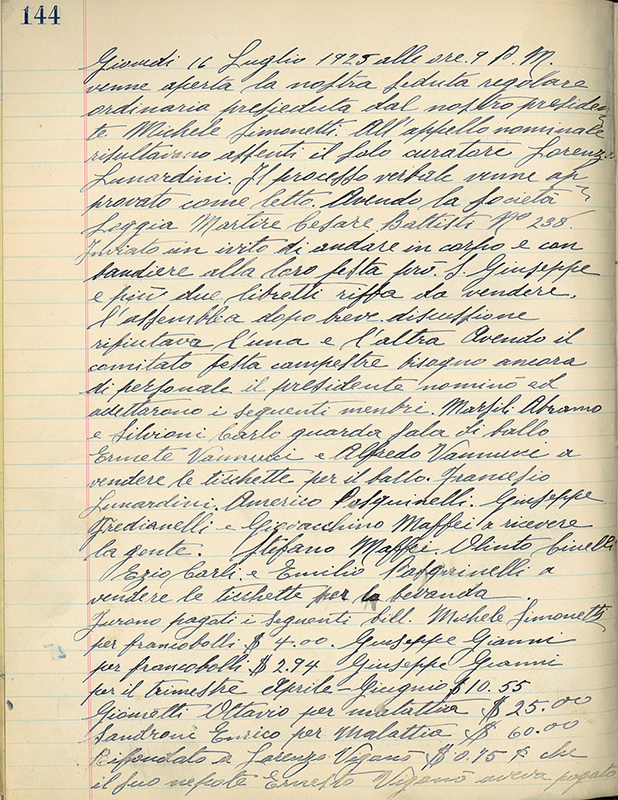 144
Giovedi 16 Luglio 1925 alle ore 9 P. M.
venne aperta la nostra seduta regolare
ordinaria presieduta dal nostro presiden
te Michele Simonetti. All'appello nominale
risultarono assenti il solo curatore Lorenzo
Lunardini. Il processo verbale venne ap
provato come letto. Avendo la società
Loggia Martire Cesare Battisti No 238.
Inviato un ivito di andare in corpo e con
bandiere alla loro festa pró S. Giuseppe
e più due libretti riffa da vendere.
l'assemblea dopo breve discussione
rifiutava l'una e l'altra Avendo il
comitato festa campestre bisogno ancora
di personale il presidente nominò ed
adettarono i seguenti menbri. Marsili Abramo
e Silvioni Carlo guarda sala di ballo
Ermete Vannucci e Alfredo Vannucci a
vendere le ticchette per il ballo. Francesco
Lunardini. Americo Pasquinelli. Giuseppe
Fredianelli e Gioacchino Maffei a ricevere
la gente. Stefano Maffei. Olinto Cinelli
Ezio Carli. e Emilio Pasquinelli a
vendere le ticchette per la bevanda
Furono pagati i seguenti bill. Michele Simonetti
per francobolli $ 4.00. Giuseppe Gianni
per francobolli $ 2.94 Giuseppe Gianni
per il trimestre Aprile - Giugnio $ 10.55
Giometti Ottavio per malattia $ 25.00
Sandroni Enrico per Malattia $ 60.00
Rifondato a Lorenzo Viganò $ 0.75 che
il suo nepote Ernesto Viganò aveva pagato